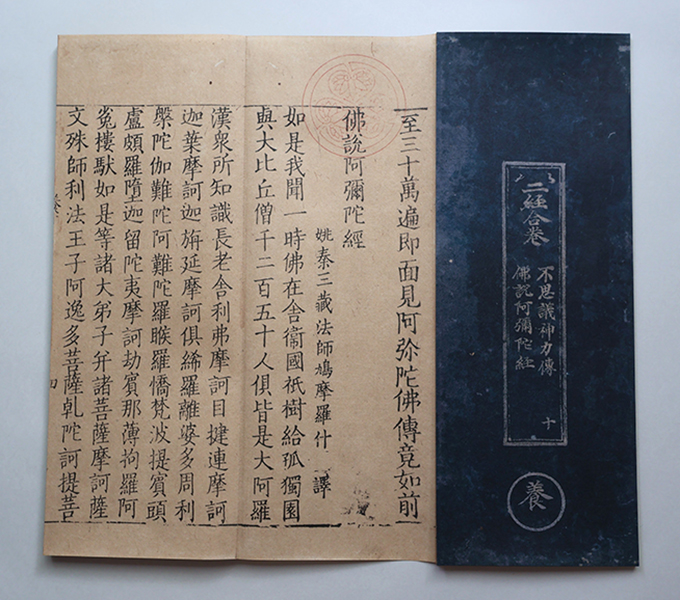 二経合巻
不思議神力傳
佛說阿彌陀経
十
養
至三十萬遍即面見阿弥陀佛傳竟如前
佛說阿彌陀經
姚秦三藏法師鳩摩羅什 譯
如是我聞一時佛在舍衞國祇樹給孤獨園
與大比丘僧千二百五十人俱皆是大阿羅
漢衆所知識長老舍利弗摩訶目揵連摩訶
迦葉摩訶迦旃延摩訶俱絺羅離婆多周利
槃陀伽難陀阿難陀羅睺羅憍梵波提賓頭
盧頗羅墮迦留陀夷摩訶劫賓那薄拘羅阿
㝹樓馱如是等諸大弟子幷諸菩薩摩訶薩
文殊師利法王子阿逸多菩薩乹陀訶提菩